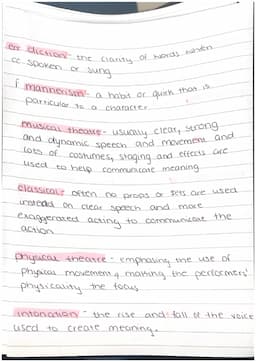 diction - the clarity of words when
spoken or sung
mannerism - a habit or quirk that is
particular to a character.
musical theatre - usually clear, strong
and dynamic speech and movement and
lots of costumes, staging and effects are
used to help communicate meaning
classical - often no props or sets are used
instead on clear speech and more
exaggerated acting to communicate the
action
physical theatre - emphasing the use of
physical movement, making the performers'
physicality the focus
intonation - the rise and fall of the voice
used to create meaning.